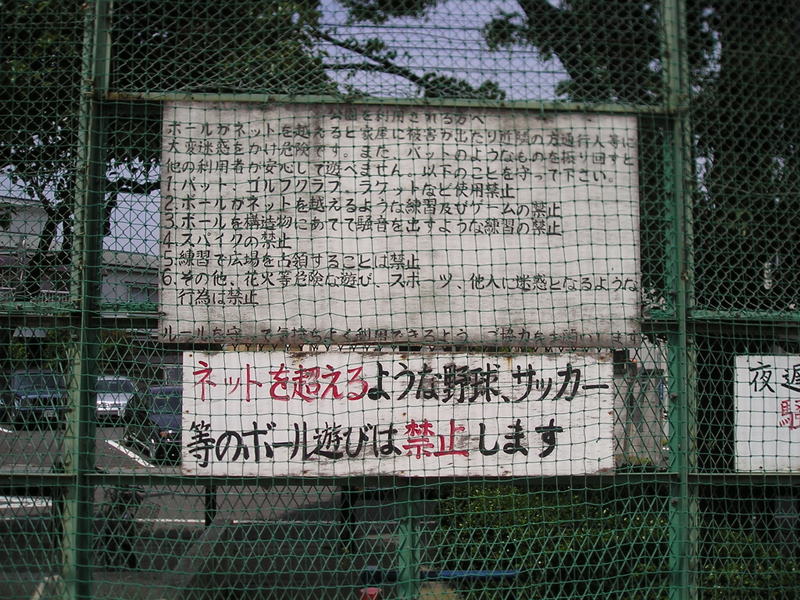 公園を利用される方へ
ボールがネットを越えると家屋に被害が出たり近隣の方通行人等に
大変迷惑をかけ危険です。また、バットのようなものを振り回すと
他の利用者が安心して遊べません。以下のことを守って下さい。
1.バット、ゴルフクラブ、ラケットなど使用禁止
2.ボールがネットを越えるような練習及びゲームの禁止
3.ボールを構造物にあてて騒音を出すような練習の禁止
4.スパイクの禁止
5.練習で広場を占領することは禁止
6.その他、花火等危険な遊び、スポーツ、他人に迷惑となるような
行為は禁止
ルールを守って気持ちよく利用できるよう、ご協力をお願いします
ネットを超えるような野球、サッカー
等のボール遊びは禁止します
夜遅
駐